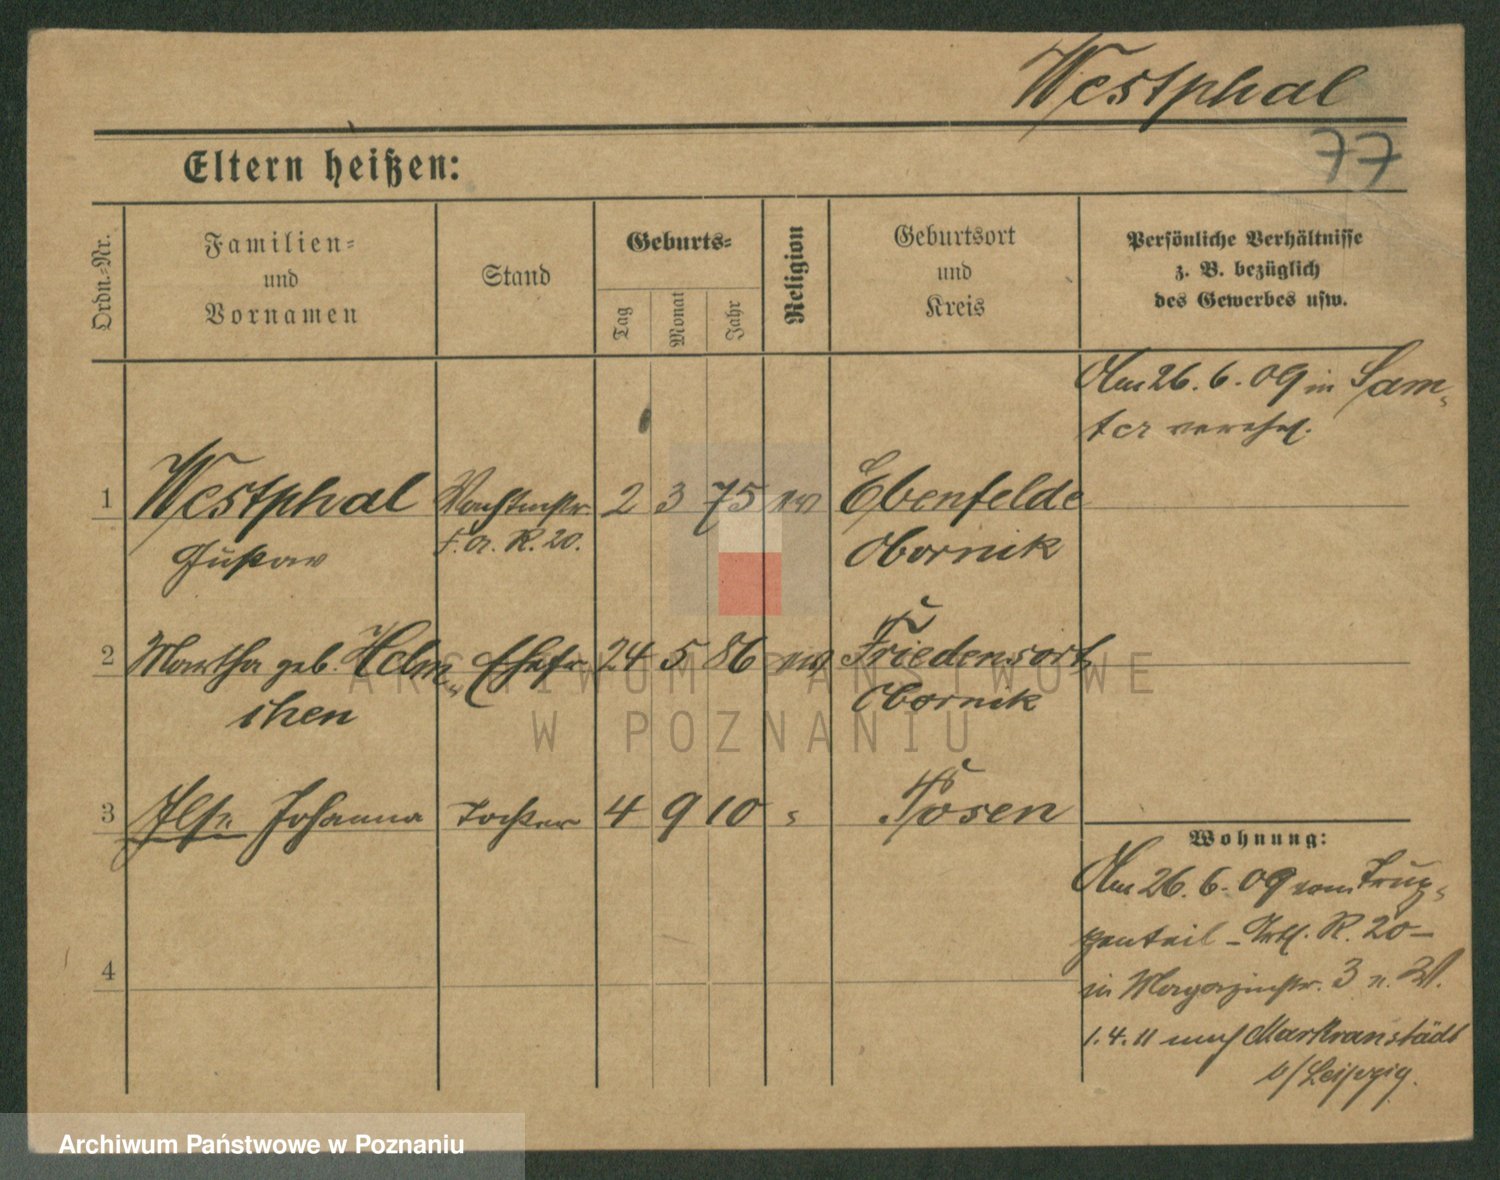 Westphal
77
Eltern heißen:
Ordn.-Nr.
Familien-
und
Vornamen
Stand
Geburts-
Tag
Monat
Jahr
Religion
Geburtsort
und
Kreis
Persönliche Verhältnisse
z. B. bezüglich
des Gewerbes usw.
Am 26. 6. 09 in Sam-
ter vereh.
1 Westphal Wachtmstr. 2 3 75 ev Ebenfelde
Gustav F. A. R. 20. Obornik
2 Martha geb. Helm- Ehefr. 24 5 86 ev Friedensort
chen Obornik
3 Ilse Johanna Tochter 4 9 10 " Posen
Wohnung:
Am 26. 6. 09 vom Trup-
penteil - Artl. R. 20 -
in Magazinstr. 3 n. W.
4
1. 4. 11 nach Markranstädt
b/Leipzig.
ARCHIWUM PAŃSTWOWE
W POZNANIU
Archiwum Państwowe w Poznaniu